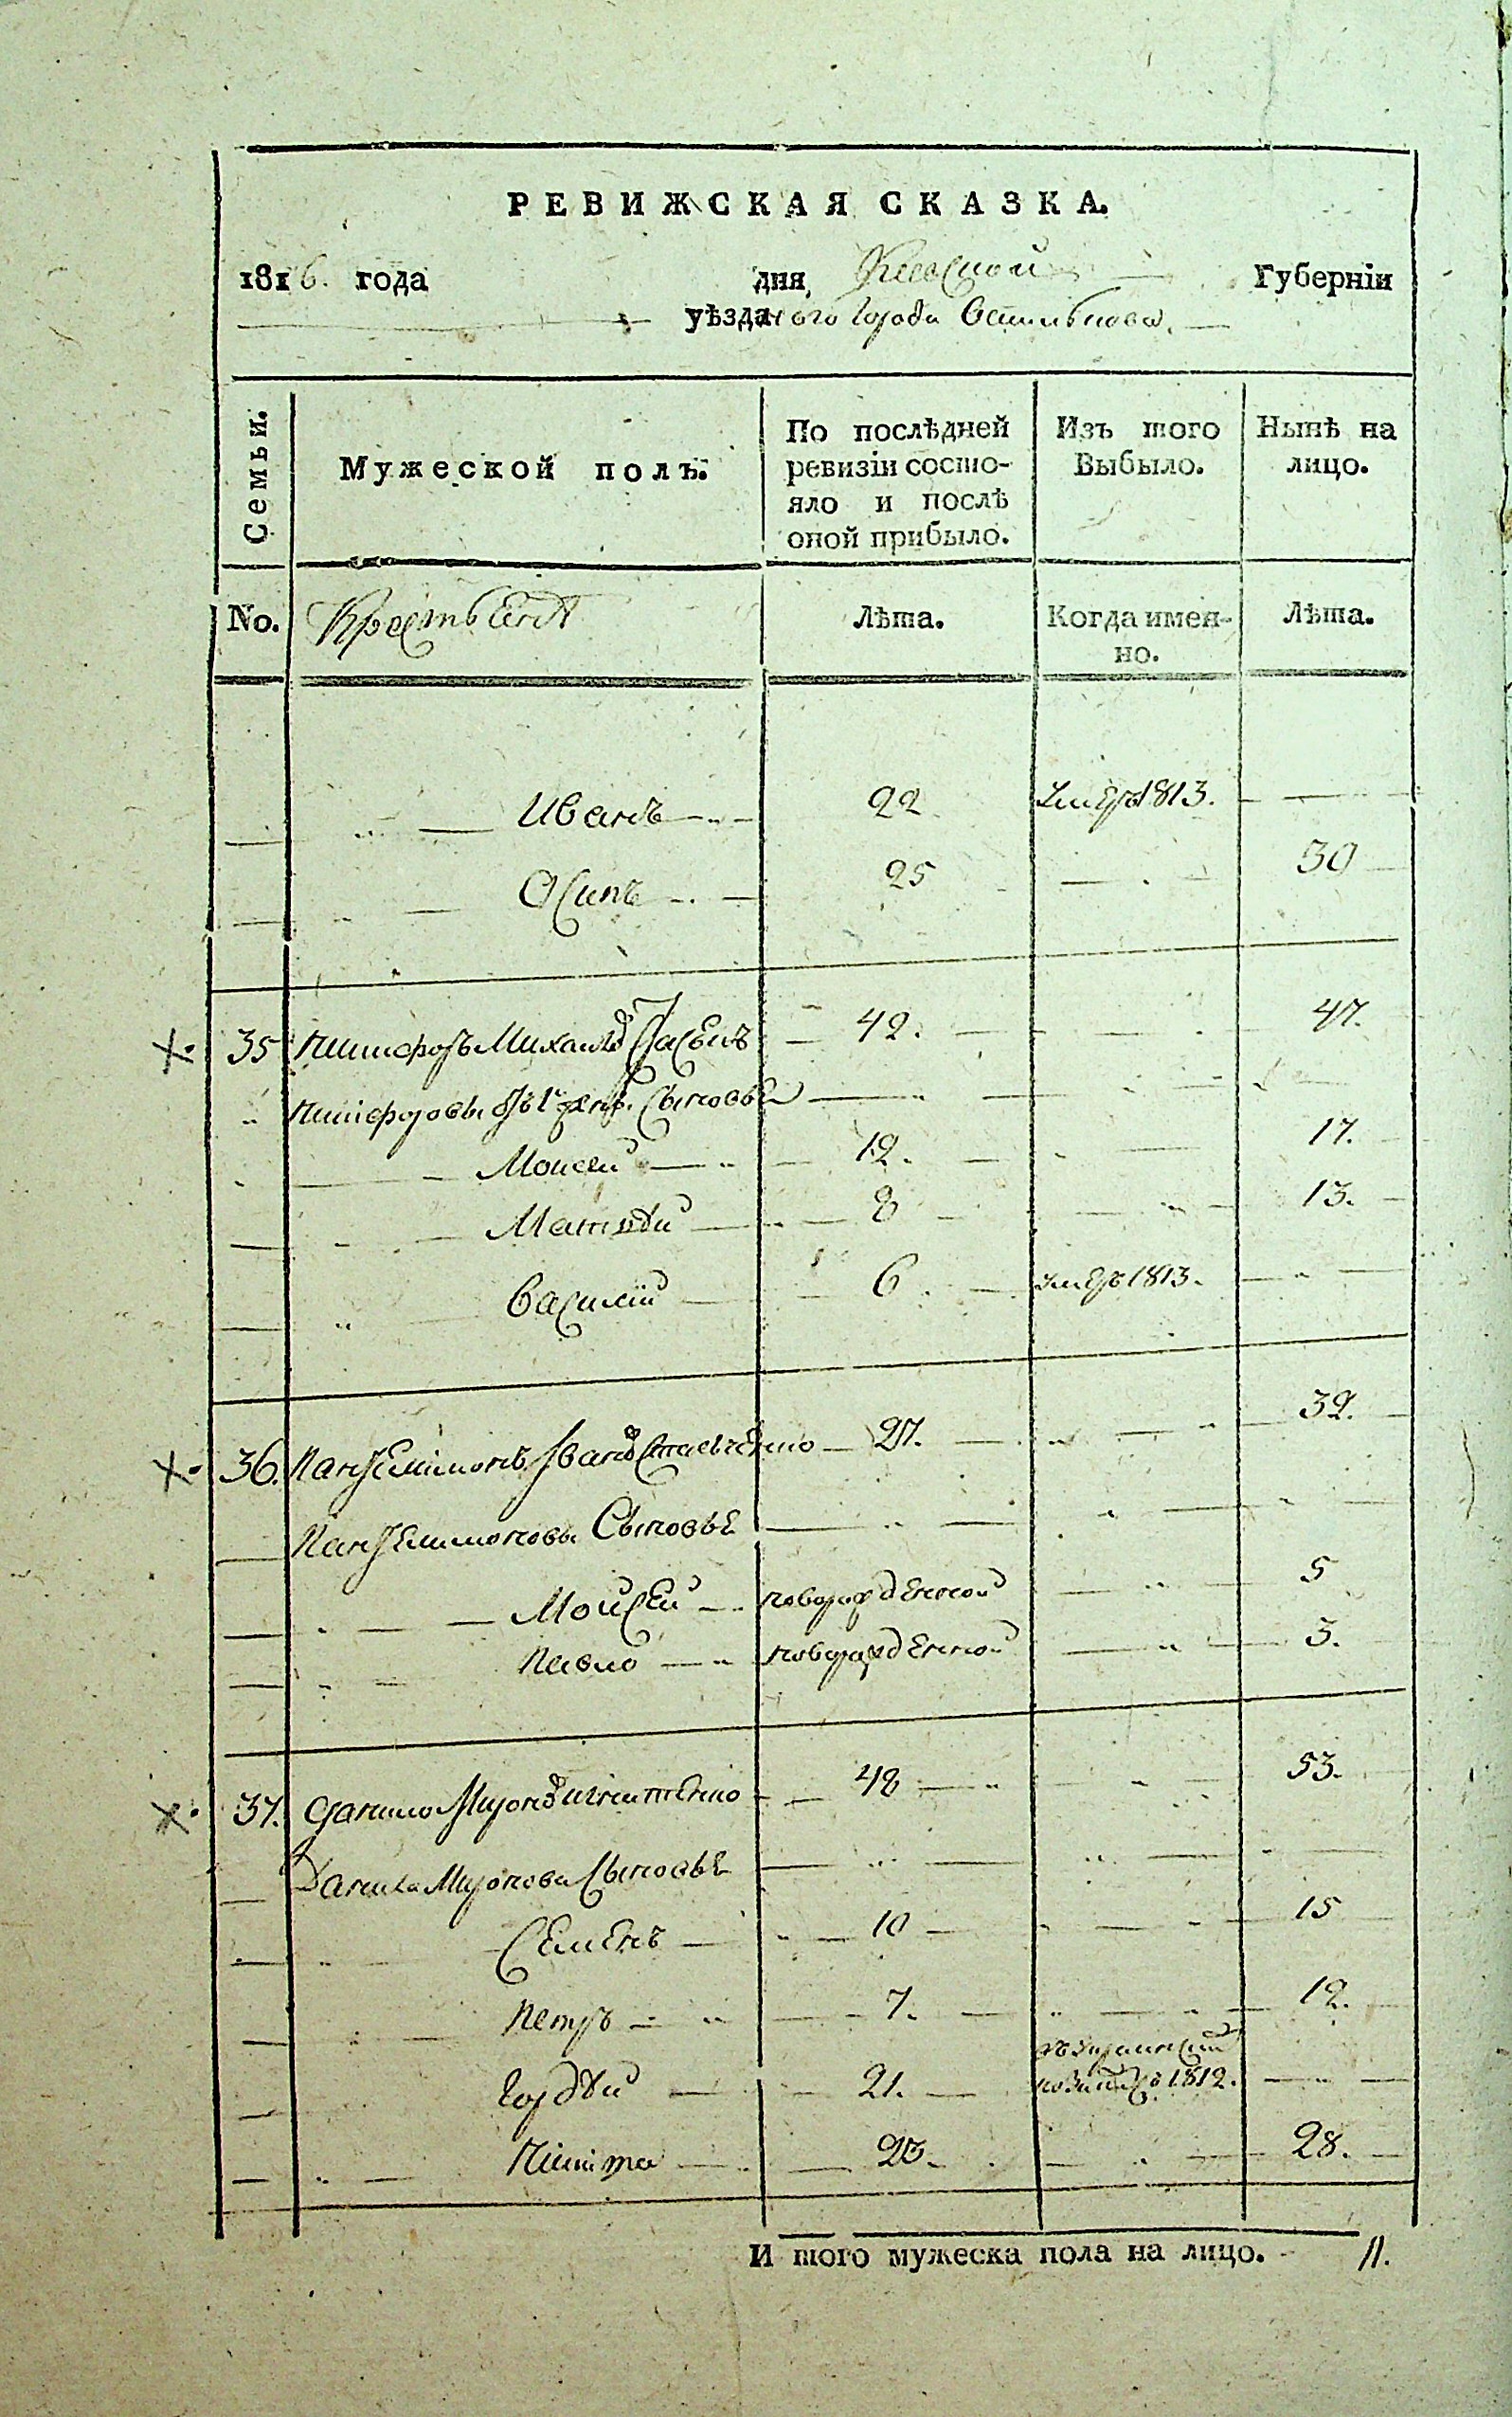 РЕВИЖСКАЯ СКАЗКА.
1816. года дня, Киевской Губерніи
уѣзда ного города Василькова.
Семьи. Мужеской полъ. По послѣдней ревизіи состо-яло и послѣ оной прибыло. Изъ того Выбыло. Нынѣ на лицо.
No. Крестьянъ Лѣта. Когда имен-но. Лѣта.
Иванъ 22 умеръ 1813.
Осипъ 25 30
35 Никифоръ Михайловъ 42. 47.
Никифоровы Сыновья
Моисей 12. 17.
Матвѣй 8 13.
Василій 6 умеръ 1813.
36. Пантелимонъ Ивановъ 27. 32.
Пантелимоновы Сыновьѣ
Мойсей новорожденной 5
Павло новорожденной 3.
37. Данило Миронов Игнатенко 48 53.
Данила Миронова Сыновьѣ
Семенъ 10 15
Петръ 7. 12.
Гордѣй 21. 1812.
Никита 23. 28.
И того мужеска пола на лицо. 11.